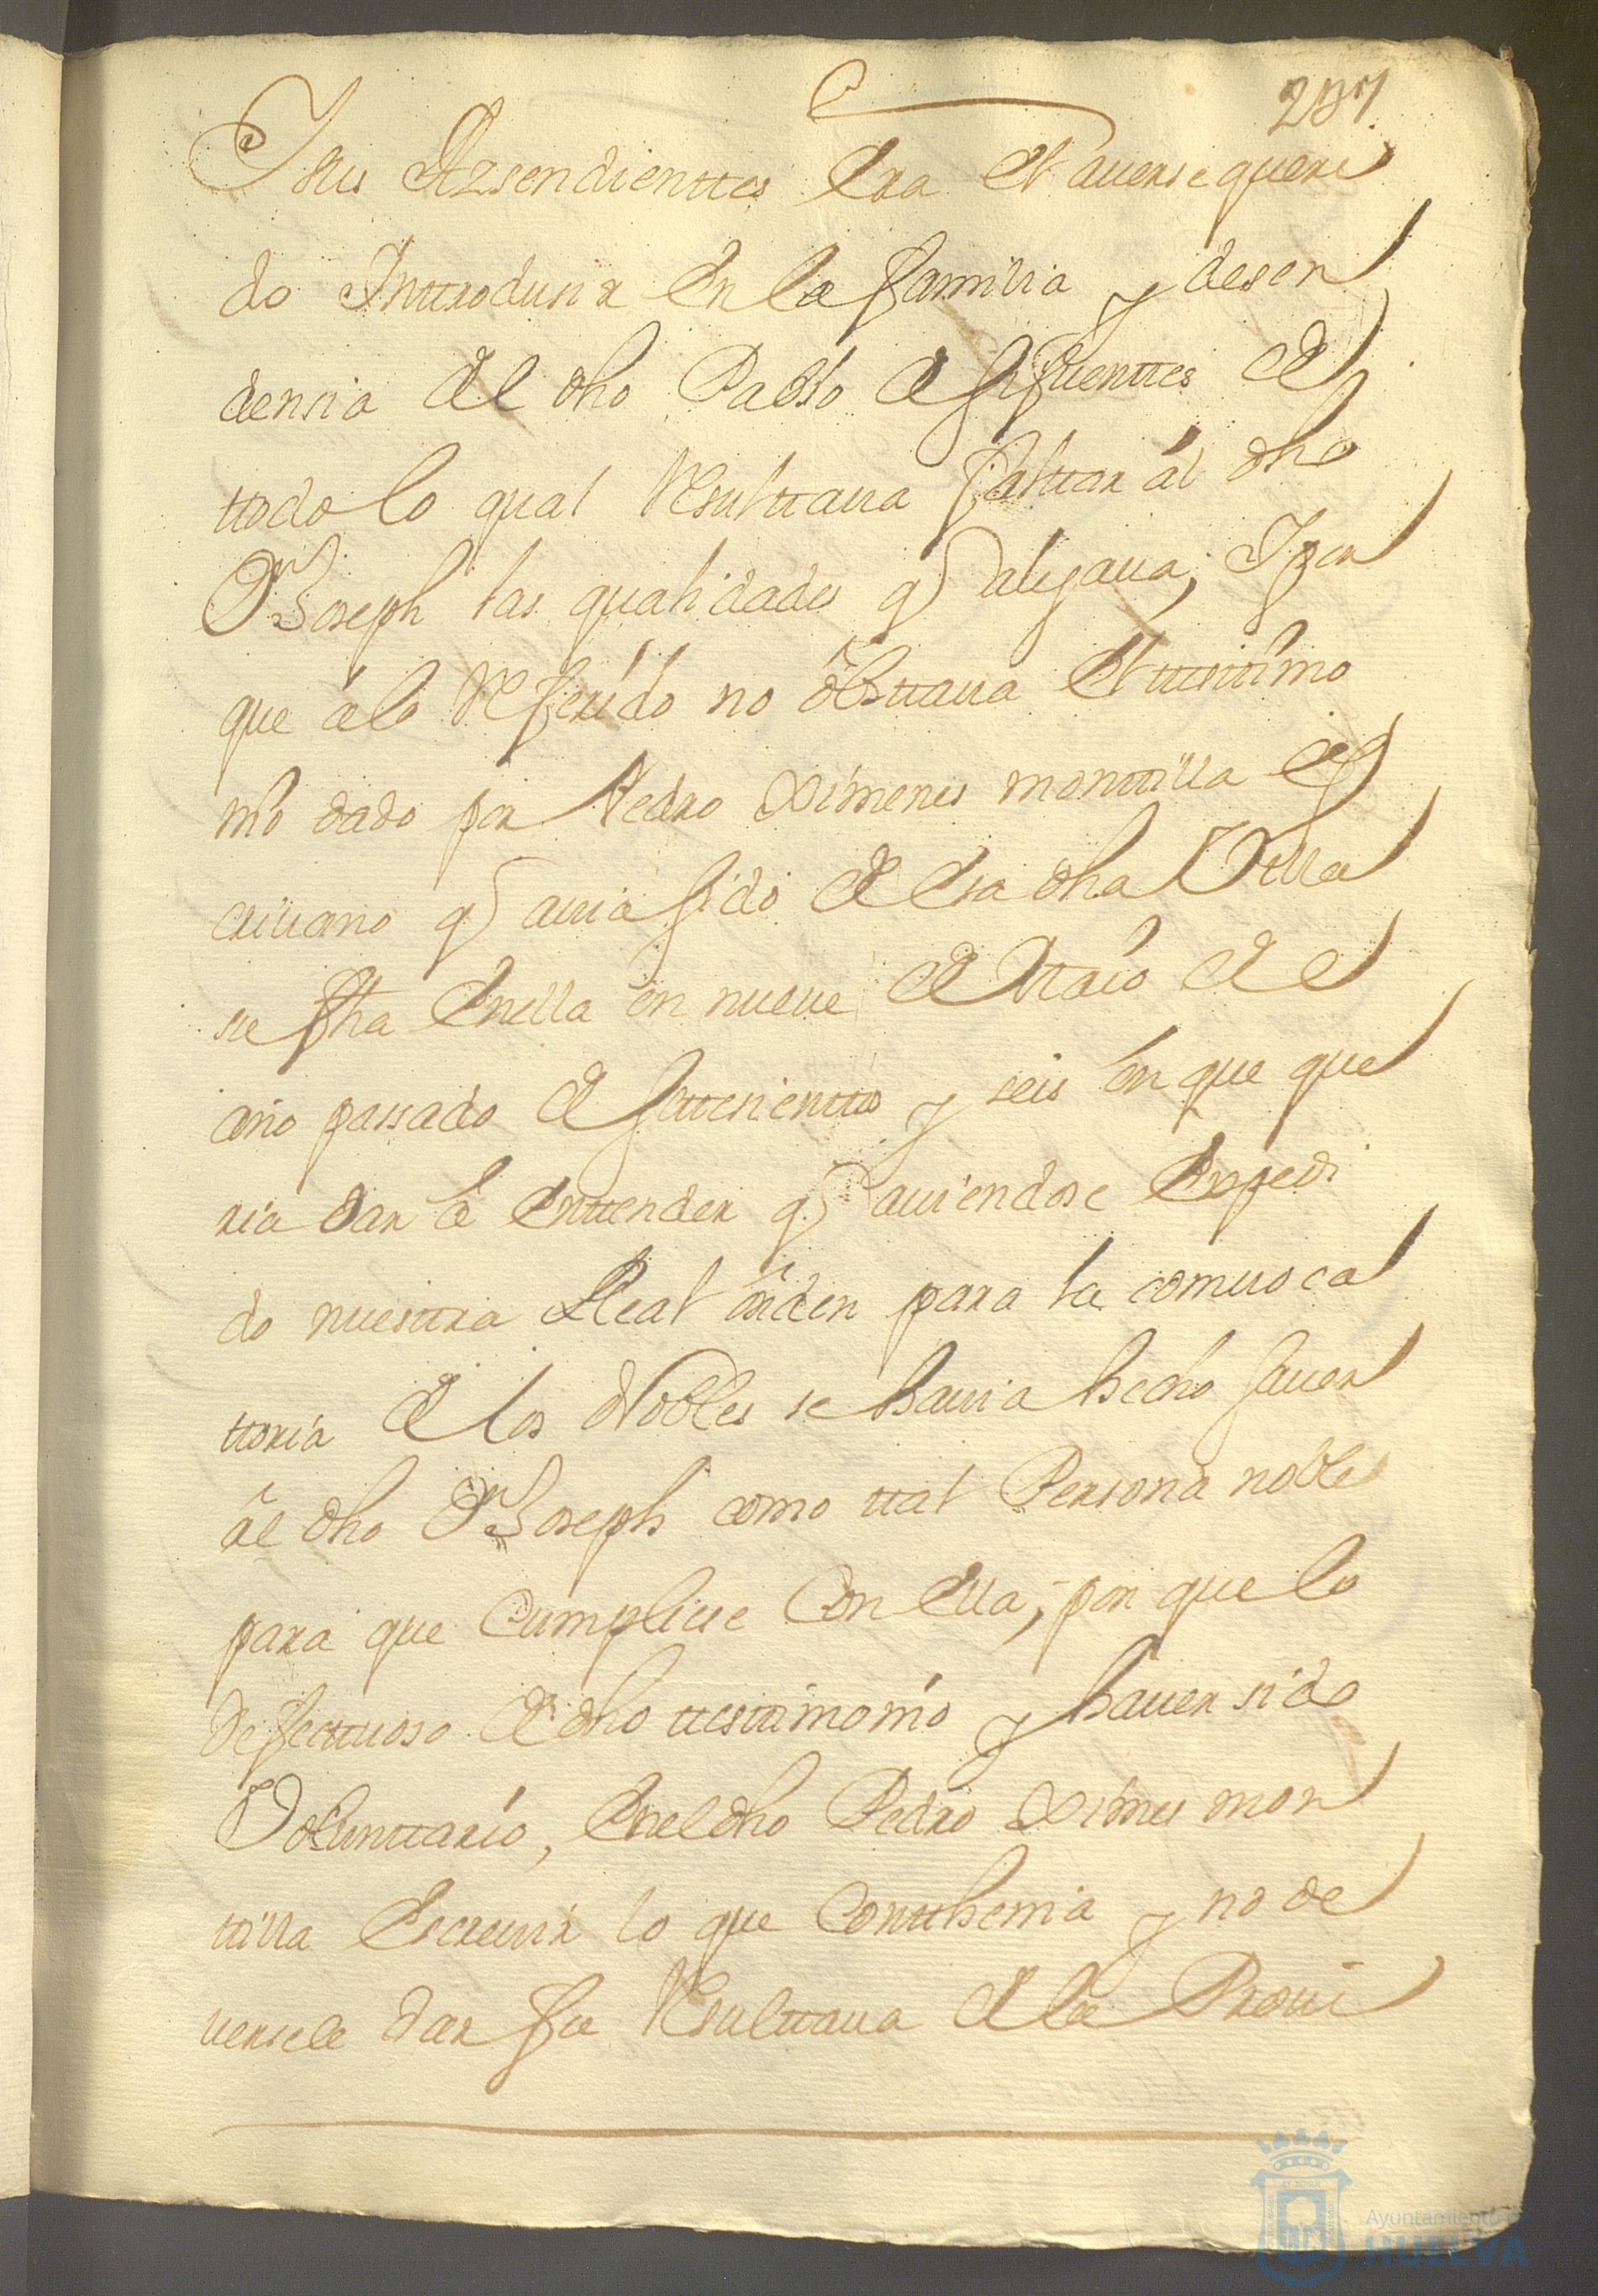 287
I sus Azsendienttes Era El auerse queri
do Inttrodusir En la familia y desen
densia del dho Pablo de sifuenttes de
ttodo lo qual Resulttaua falttar ál dho
Dn Joseph las qualidades q alegaua; Y por
que á lo Referido no obsttaua El ttesttimo
nio dado por Pedro Ximenes monttilla es
criuano q auia sido de Esa dha Villa
su fha Enella en nueue de Maio de el
año passado de settesienttos y seis en que que
ria dar á Enttender q auiendose Expedi
do nuesttra Real orden para la comuoca
ttoria de los Nobles se hauia hecho sauer
al dho Dn Joseph como ttal Persona noble
para que Cumpliese Con Ella, por que lo
defecttuoso de dho ttesttimonio y hauer sido
Volunttario, Enel dho Pedro Ximes mon
ttilla Escreuir lo que Contthenia y no de
uersele dar fee Resulttaua de la Proui
Ayuntamiento de
HUELVA